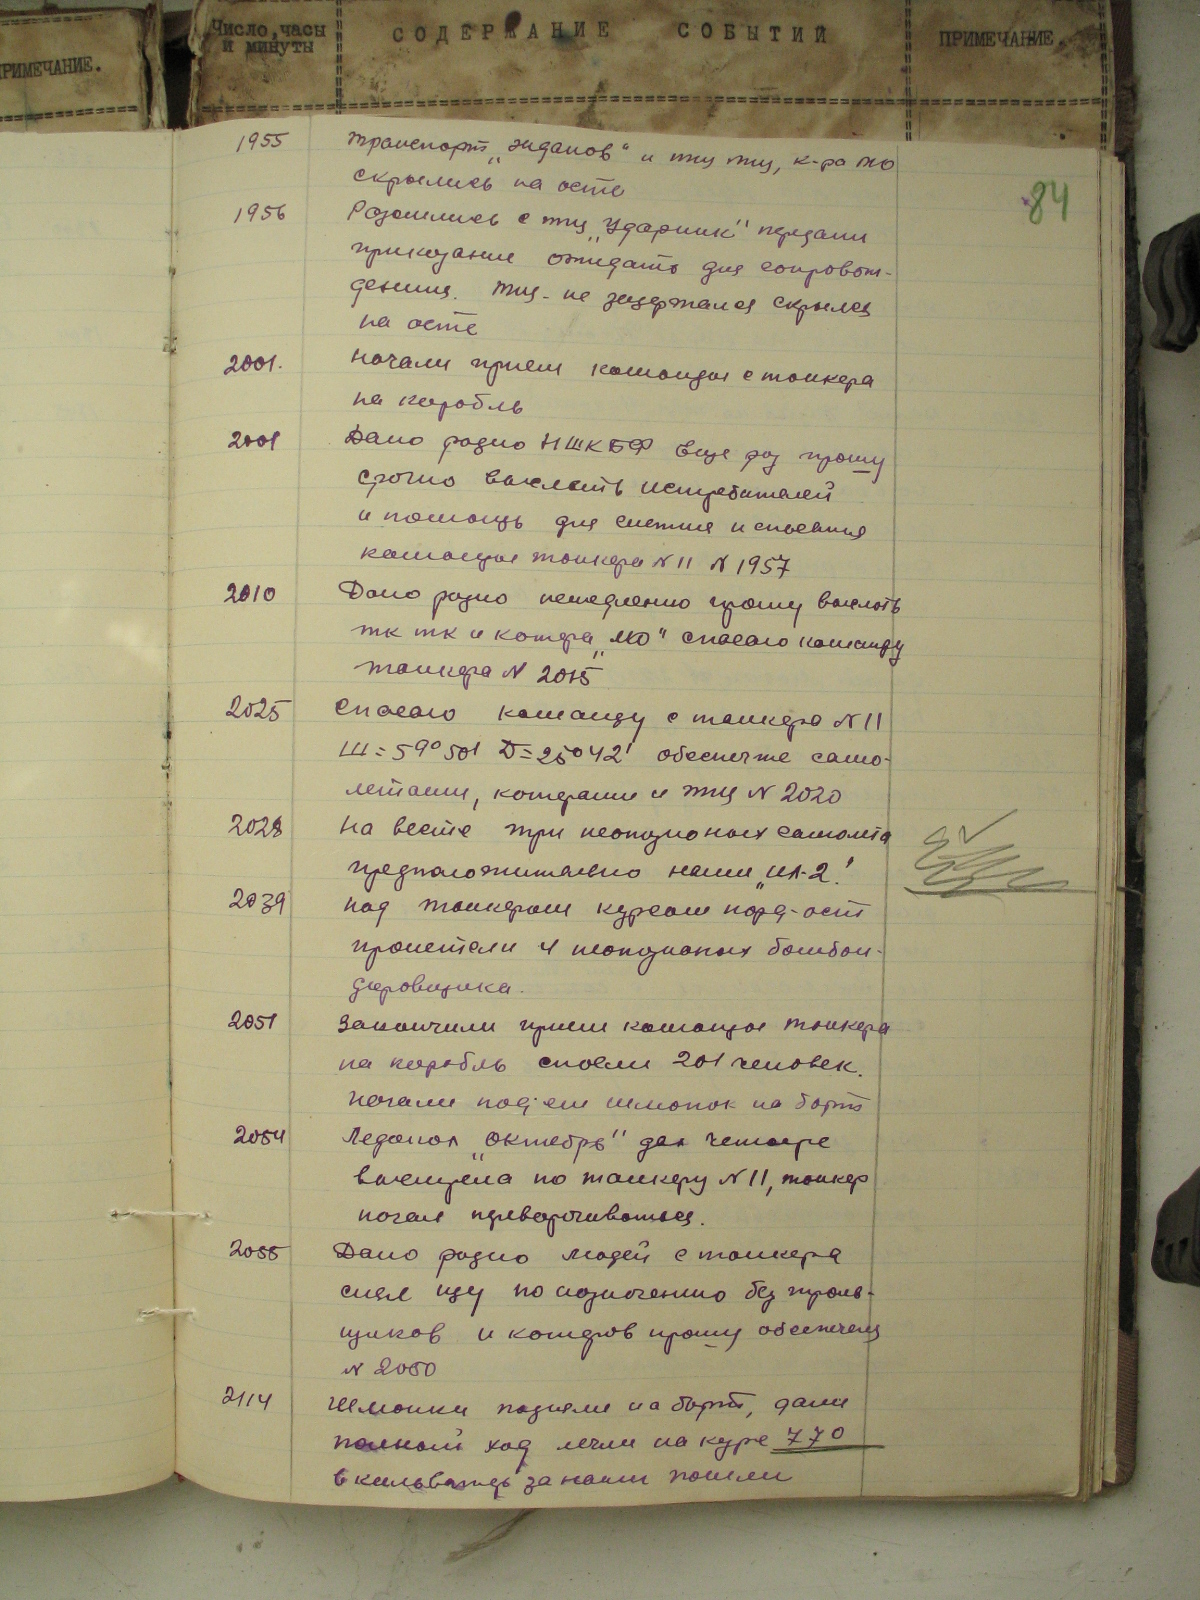 ПРИМЕЧАНИЕ.
Число, часы и минуты
СОДЕРЖАНИЕ СОБЫТИЙ
ПРИМЕЧАНИЕ.
84
1955 транспорт „Жданов" и тщ тщ, к-ра МО
скрылись на осте
1956 Разошлись с тщ „Ударник" передали
приказание ожидать для сопровож-
дения. тщ - не задержался скрылся
на осте
2001. начали прием команды с танкера
на корабль
2001 Дано радио НШКБФ Еще раз прошу
срочно выслать истребителей
и помощь для снятия и спасения
команды танкера N 11 N 1957
2010 Дано радио немедленно прошу выслать
тк тк и катера „МО" спасаю команду
танкера N 2015
2025 Спасаю команду с танкера N 11
Ш=59°50' Д=25°42' обеспечте само-
летами, катерами и тщ N 2020
2028 на весте три неопознаных самолета
предположительно наши „ИЛ-2"
2039 над танкером курсом норд-ост
пролетели 4 неопознаных бомбан-
дировщика.
2051 Закончили прием команды танкера
на корабль сняли 201 человек.
Начали под'ем шлюпок на борт
2054 Ледокол „Октябрь" дал четыре
выстрела по танкеру N 11, танкер
начал переворачиваться.
2055 Дано радио людей с танкера
снял иду по назначению без траль-
щиков и катеров прошу обеспечен
N 2050
2114 Шлюпки подняли на борт, дали
полный ход легли на курс 770
в кильватер за нами пошли